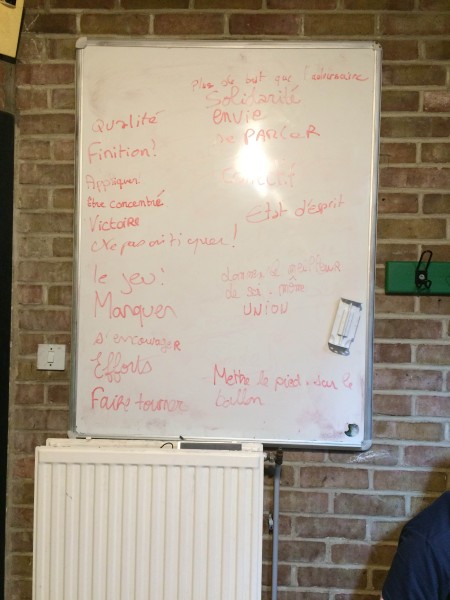 Plus de but que l'adversaire
Solidarité
envie
se PARLER
Qualité
Finition!
Appliquer
être concentré
Victoire
Ne pas critiquer!
le jeu!
Marquer
s'encourager
Efforts
Faire tourner
Etat d'esprit
donner le meilleur
de soi-même
UNION
Mettre le pied sur le
ballon